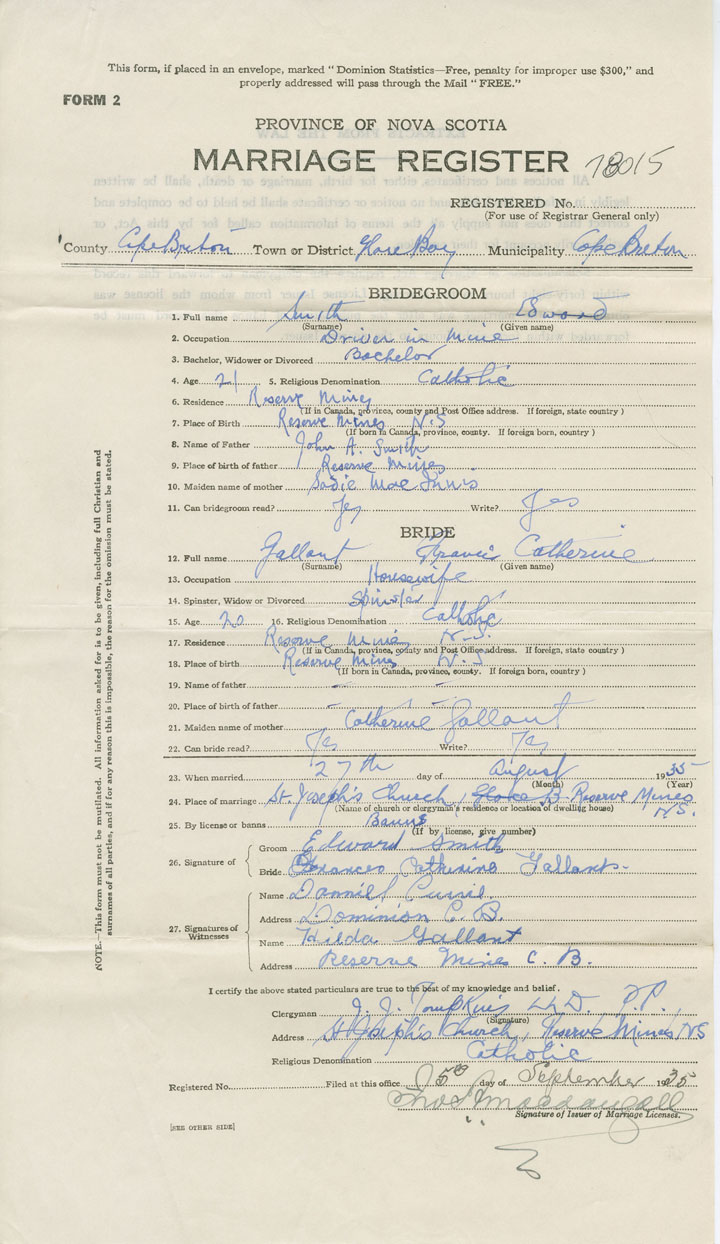 This form, if placed in an envelope, marked "Dominion Statistics—Free, penalty for improper use $300," and
properly addressed will pass through the Mail "FREE."
FORM 2
PROVINCE OF NOVA SCOTIA
MARRIAGE REGISTER 78015
REGISTERED No.
(For use of Registrar General only)
County Cape Breton Town or District Glace Bay Municipality Cape Breton
BRIDEGROOM
1. Full name Smith Edward
(Surname) (Given name)
2. Occupation Driver in Mine
3. Bachelor, Widower or Divorced Bachelor
4. Age 21 5. Religious Denomination Catholic
6. Residence Reserve Mines
(If in Canada, province, county and Post Office address. If foreign, state country)
7. Place of Birth Reserve Mines N.S
(If born in Canada, province, county. If foreign born, country)
8. Name of Father John A. Smith
9. Place of birth of father Reserve Mines
10. Maiden name of mother Sadie MacInnis
11. Can bridegroom read? Yes Write? Yes
BRIDE
12. Full name Gallant Francis Catherine
(Surname) (Given name)
13. Occupation Housewife
14. Spinster, Widow or Divorced Spinster
15. Age 20 16. Religious Denomination Catholic
17. Residence Reserve Mines N.S.
(If in Canada, province, county and Post Office address. If foreign, state country)
18. Place of birth Reserve Mines N.S
(If born in Canada, province, county. If foreign born, country)
19. Name of father - -
20. Place of birth of father - -
21. Maiden name of mother Catherine Gallant
22. Can bride read? Yes Write? Yes
23. When married 27th day of August 1935
(Month) (Year)
24. Place of marriage St. Joseph's Church, Reserve Mines
(Name of church or clergyman's residence or location of dwelling house) N.S.
25. By license or banns Banns
(If by license, give number)
26. Signature of Groom Edward Smith
Bride Frances Catherine Gallant.
27. Signatures of Witnesses Name Danniel Currie.
Address Dominion C. B.
Name Hilda Gallant
Address Reserve Mines C. B.
I certify the above stated particulars are true to the best of my knowledge and belief.
Clergyman J. J. Tompkins LL.D. P.P.
(Signature)
Address St Joseph's Church, Reserve Mines, NS
Religious Denomination Catholic
Registered No. Filed at this office 5th day of September 1935
Thos J Macdougall
Signature of Issuer of Marriage Licenses.
[SEE OTHER SIDE]
NOTE.—This form must not be mutilated. All information asked for is to be given, including full Christian and
surnames of all parties, and if for any reason this is impossible, the reason for the omission must be stated.